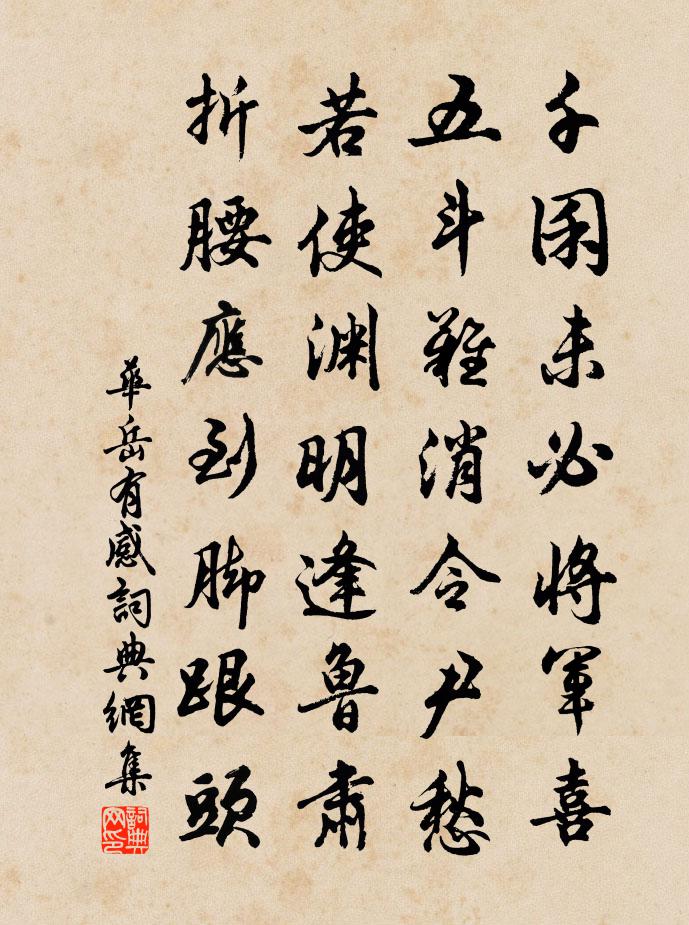 千囷未必將軍喜
五斗難消令尹愁
若使渊明逢魯肅
折腰應到脚跟頭
華岳有感詞典網集
詞典网印